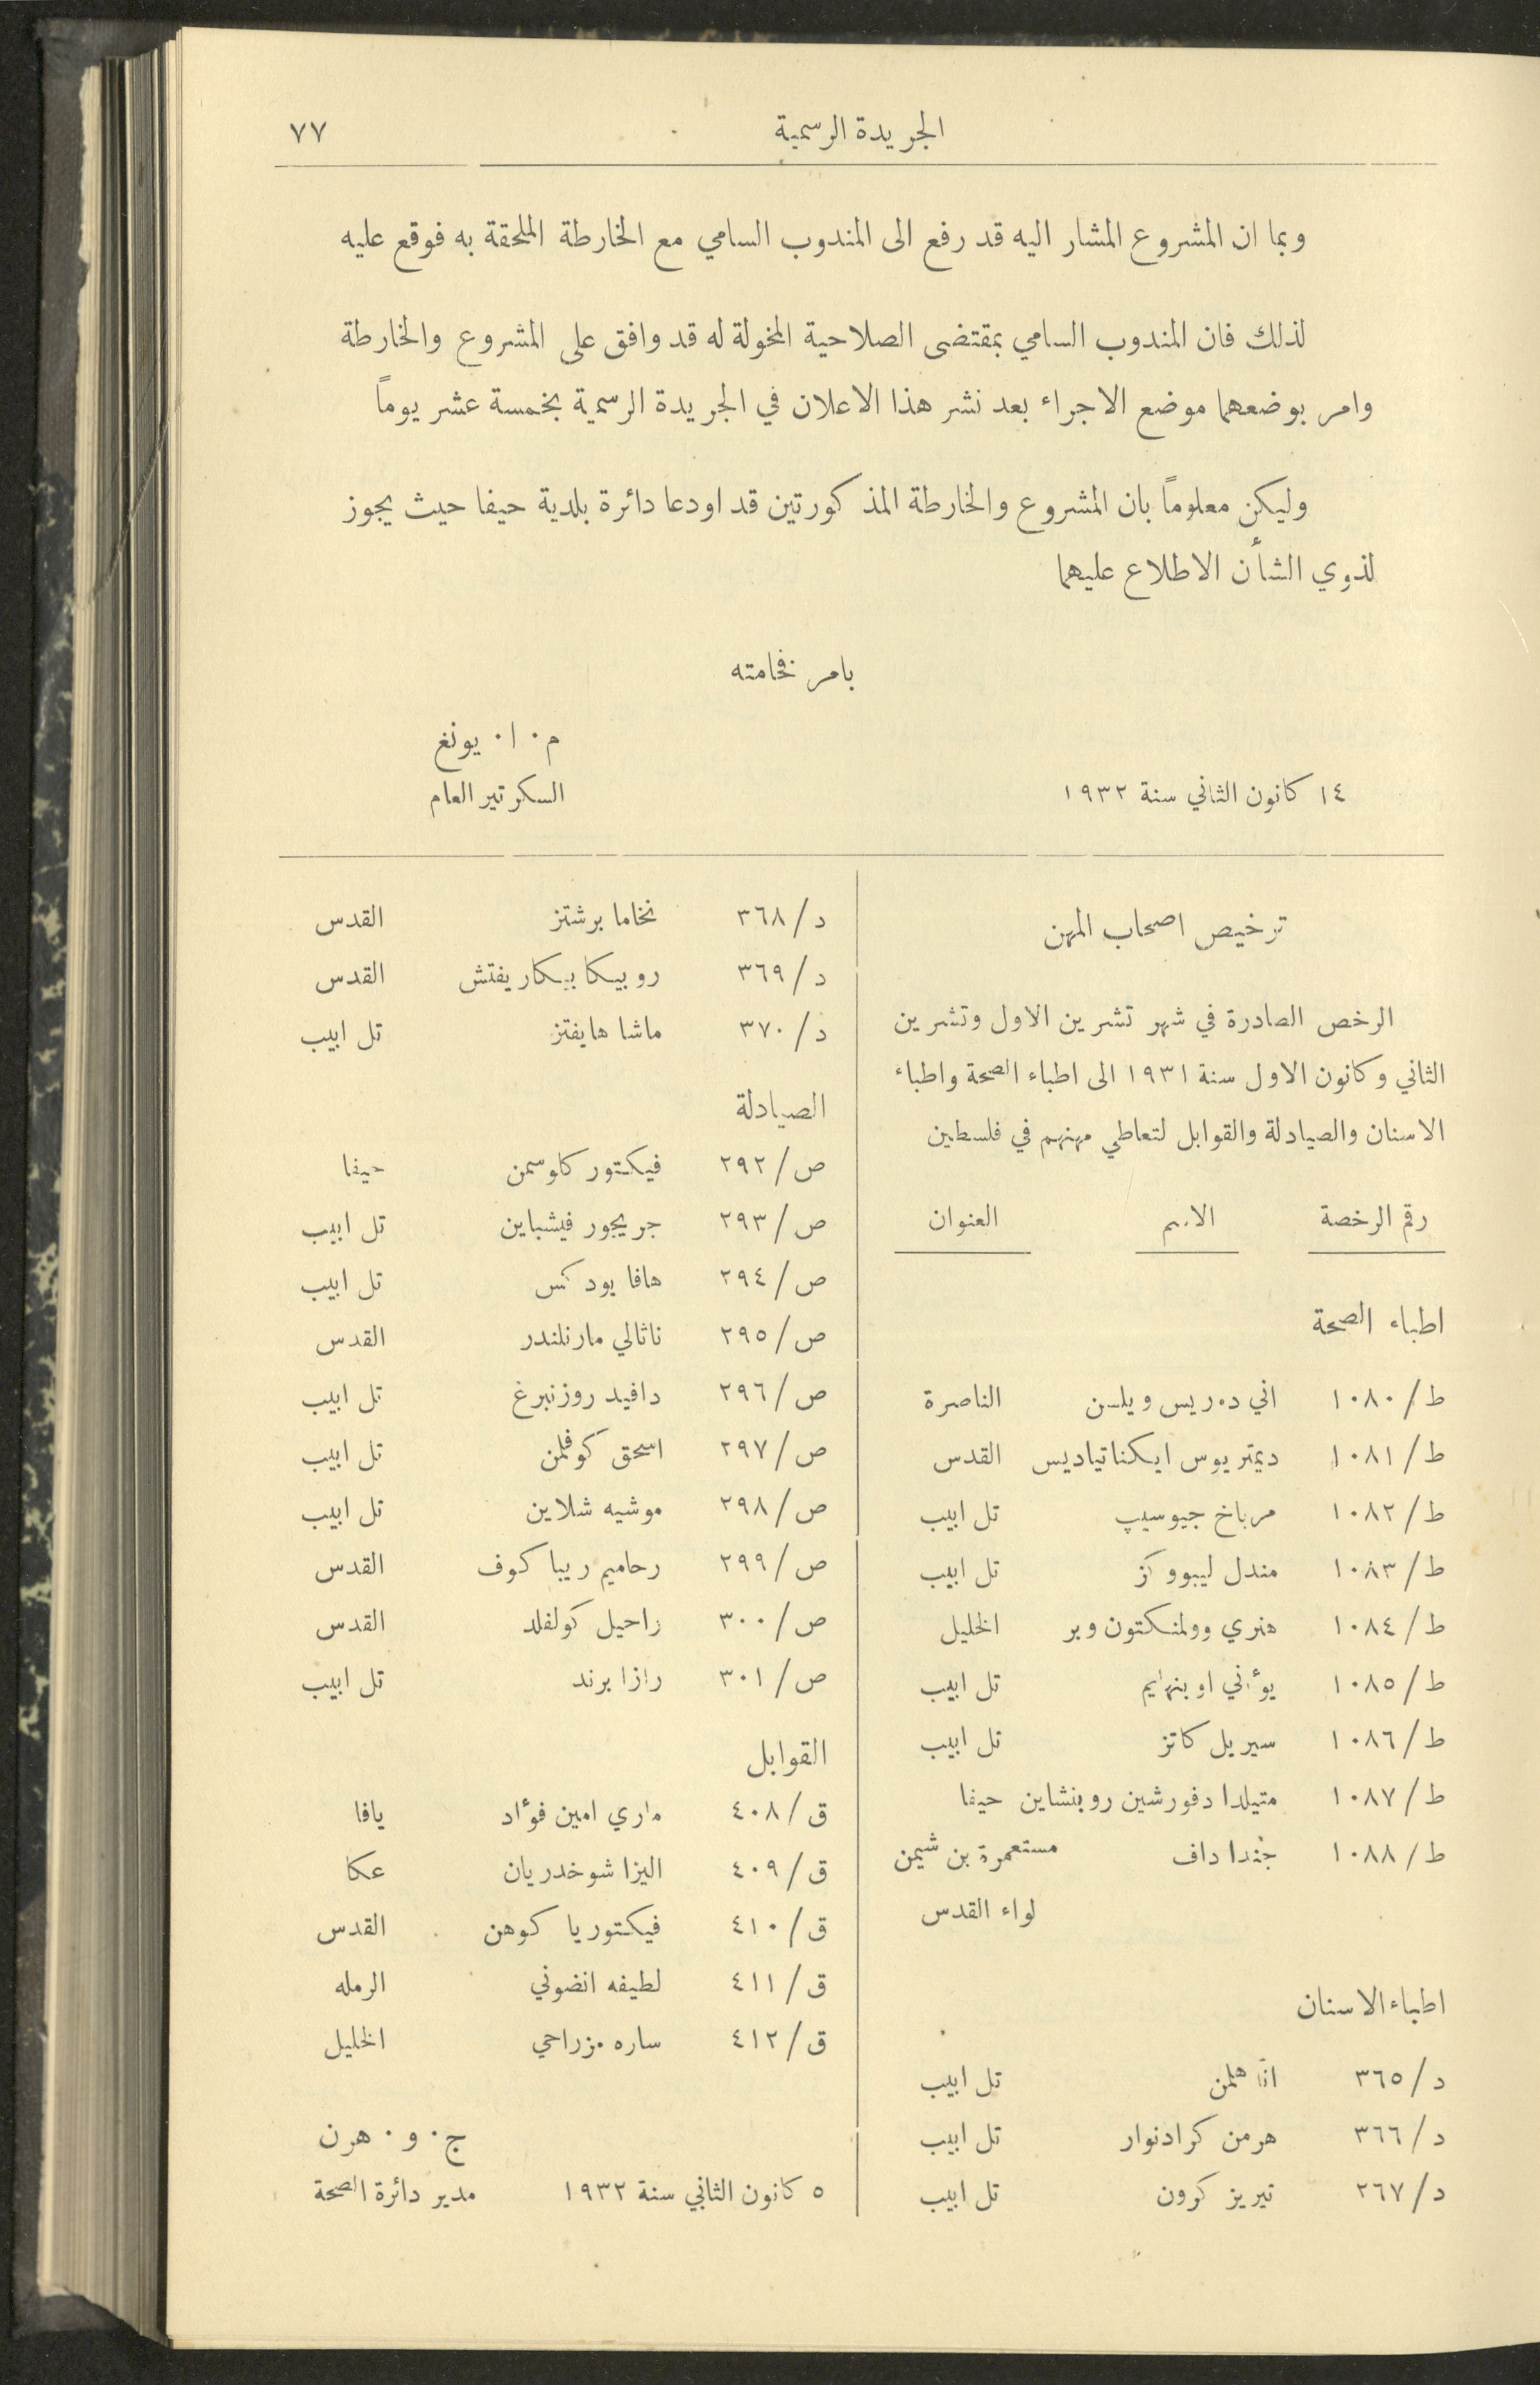 الجريدة الرسمية ٧٧
وبما ان المشروع المشار اليه قد رفع الى المندوب السامي مع الخارطة الملحقة به فوقع عليه
لذلك فان المندوب السامي بمقتضى الصلاحية المخولة له قد وافق على المشروع والخارطة
وامر بوضعهما موضع الاجراء بعد نشر هذا الاعلان في الجريدة الرسمية بخمسة عشر يوماً
وليكن معلوماً بان المشروع والخارطة المذكورتين قد اودعا دائرة بلدية حيفا حيث يجوز
لذوي الشأن الاطلاع عليهما
بامر فخامته
م٠ ا٠ يونغ
١٤ كانون الثاني سنة ١٩٣٢ السكرتير العام
ترخيص اصحاب المهن
الرخص الصادرة في شهر تشرين الاول وتشرين
الثاني وكانون الاول سنة ١٩٣١ الى اطباء الصحة واطباء
الاسنان والصيادلة والقوابل لتعاطي مهنهم في فلسطين
رقم الرخصة الاسم العنوان
اطباء الصحة
ط/١٠٨٠ اني دوريس ويلسن الناصرة
ط/١٠٨١ ديمتريوس ايكناتياديس القدس
ط/١٠٨٢ مرباخ جيوسيب تل ابيب
ط/١٠٨٣ مندل ليبووكز تل ابيب
ط/١٠٨٤ هنري وولنكتون وبر الخليل
ط/١٠٨٥ يؤاني اوبنهايم تل ابيب
ط/١٠٨٦ سيريل كاتز تل ابيب
ط/١٠٨٧ متيلدا دفورشين روبنشاين حيفا
ط/١٠٨٨ جندا داف مستعمرة بن شيمن
لواء القدس
اطباء الاسنان
د/٣٦٥ انا هلمن تل ابيب
د/٣٦٦ هرمن كرادنوار تل ابيب
د/٢٦٧ تيريز كرون تل ابيب
د/٣٦٨ نخاما برشتز القدس
د/٣٦٩ روبيكا بيكاريفتش القدس
د/٣٧٠ ماشا هايفتز تل ابيب
الصيادلة
ص/٢٩٢ فيكتور كاوسمن حيفا
ص/٢٩٣ جريجور فيشباين تل ابيب
ص/٢٩٤ هافا يودكس تل ابيب
ص/٢٩٥ ناثالي مارنلندر القدس
ص/٢٩٦ دافيد روزنبرغ تل ابيب
ص/٢٩٧ اسحق كوفلمن تل ابيب
ص/٢٩٨ موشيه شلاين تل ابيب
ص/٢٩٩ رحاميم ريباكوف القدس
ص/٣٠٠ راحيل كولفلد القدس
ص/٣٠١ رازا برند تل ابيب
القوابل
ق/٤٠٨ ماري امين فؤاد يافا
ق/٤٠٩ اليزا شوخدريان عكا
ق/٤١٠ فيكتوريا كوهن القدس
ق/٤١١ لطيفه انضوني الرمله
ق/٤١٢ ساره مزراحي الخليل
ج٠ و٠ هرن
٥ كانون الثاني سنة ١٩٣٢ مدير دائرة الصحة